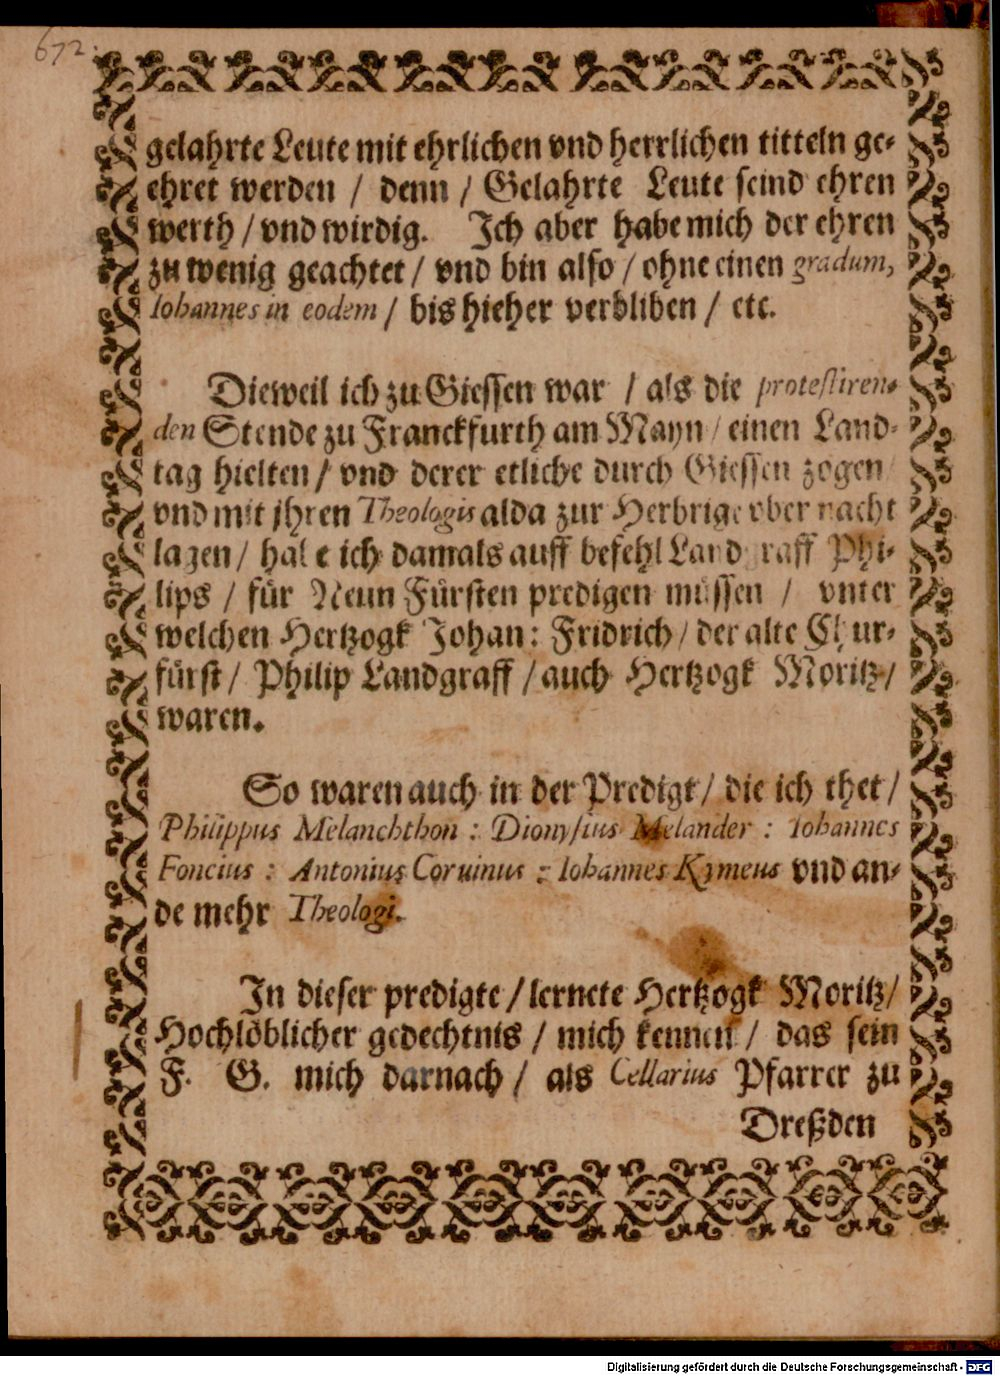 672.
gelahrte Leute mit ehrlichen vnd herrlichen titteln ge-
ehret werden / denn / Gelahrte Leute seind ehren
werth / vnd wirdig. Ich aber habe mich der ehren
zu wenig geachtet / vnd bin also / ohne einen gradum,
Iohannes in eodem / bis hieher verbliben / etc.
Dieweil ich zu Giessen war / als die protestiren-
den Stende zu Franckfurth am Mayn / einen Land-
tag hielten / vnd derer etliche durch Giessen zogen
vnd mit jhren Theologis alda zur Herbrige vber nacht
lagen / habe ich damals auff befehl Landgraff Phi-
lips / für Neun Fürsten predigen müssen / vnter
welchen Hertzogk Johan: Fridrich / der alte Chur-
fürst / Philip Landgraff / auch Hertzogk Moritz /
waren.
So waren auch in der Predigt / die ich thet /
Philippus Melanchthon : Dionysius Melander : Iohannes
Foncius : Antonius Coruinus : Iohannes Kymeus vnd an-
de mehr Theologi.
In dieser predigte / lernete Hertzogk Moritz /
Hochlöblicher gedechtnis / mich kennen / das sein
F. G. mich darnach / als Cellarius Pfarrer zu
Dreßden
Digitalisierung gefördert durch die Deutsche Forschungsgemeinschaft - DFG